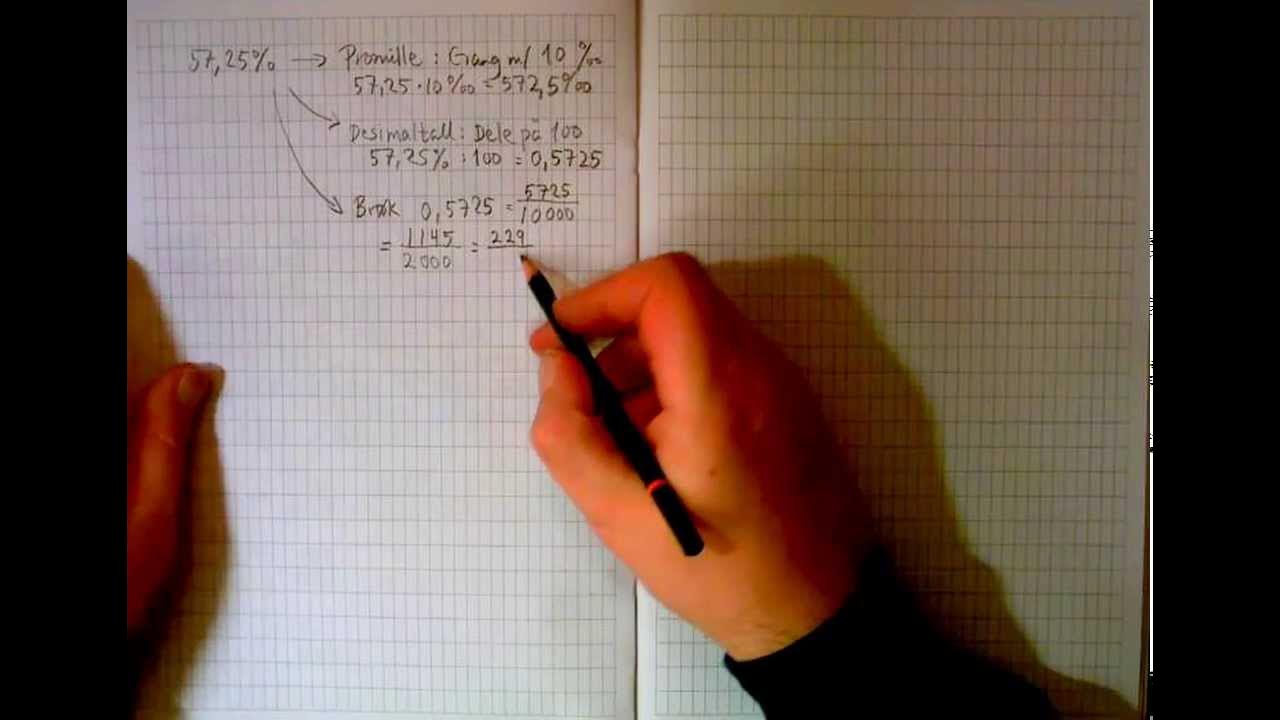 57,25% → Promille : Gang m/ 10 ‰
57,25 · 10‰ = 572,5‰
Desimaltall : Dele på 100
57,25% : 100 = 0,5725
Brøk 0,5725 = 5725/10000
= 1145/2000 = 229/